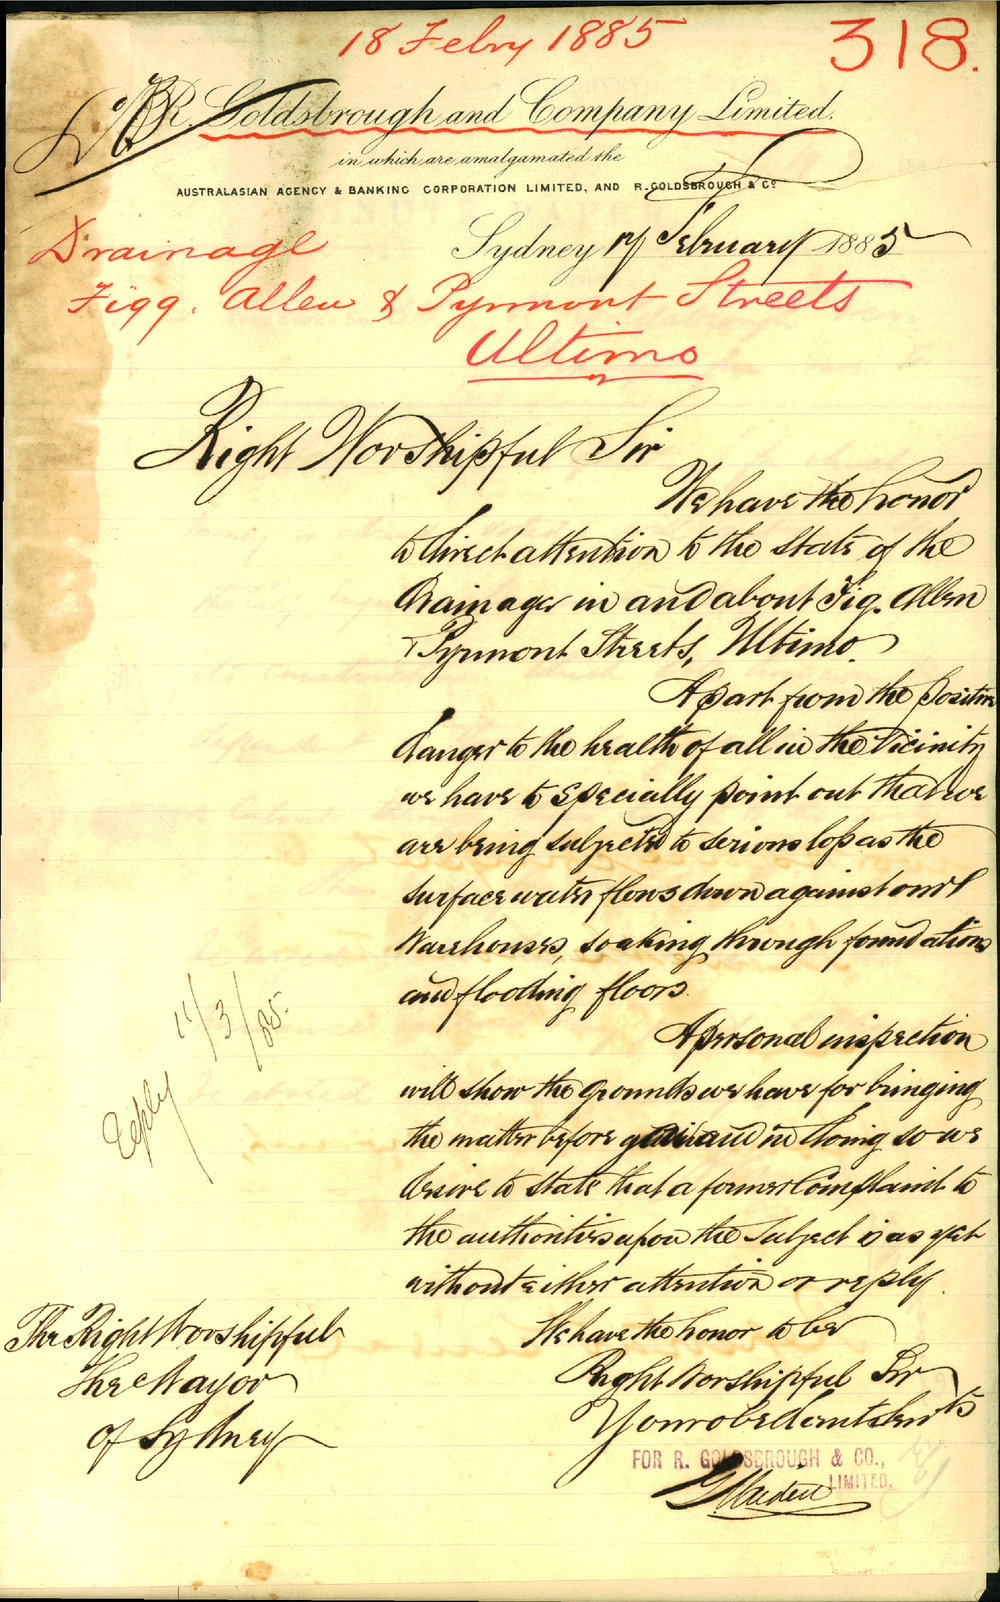 18 Febry 1885
318.
R Goldsbrough and Company Limited.
in which are amalgamated the
AUSTRALASIAN AGENCY & BANKING CORPORATION LIMITED, AND R. GOLDSBROUGH & Co
Sydney 17 February 1885
Drainage
Figg. Allen & Pyrmont Streets
Ultimo
Right Worshipful Sir
We have the honor
to direct attention to the state of the
Drainage in and about Fig. Allen
& Pyrmont Streets, Ultimo.
Apart from the positive
danger to the health of all in the vicinity
we have to specially point out that we
are being subjected to serious loss as the
surface water flows down against our
Warehouses, soaking through foundations
and flooding floors.
A personal inspection
will show the grounds we have for bringing
the matter before and in doing so we
desire to state that a former Complaint to
the authorities upon the subject is as yet
without either attention or reply.
We have the honor to be
Right Worshipful Sir
Your obedient Servts
FOR R. GOLDSBROUGH & CO.,
LIMITED.
The Right Worshipful
The Mayor
of Sydney
Reply 11/3/85.